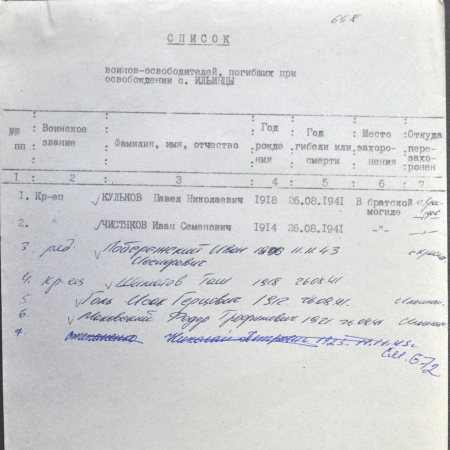 СПИСОК
воинов-освободителей, погибших при
освобождении с. ИЛЬИНЦЫ
№№ пп : Воинское звание : Фамилия, имя, отчество : Год рожде ния : Год гибели или смерти : Место захоро- нения : Откуда пере- захо- ронен
I : 2 : 3 : 4 : 5 : 6 : 7
1. Кр-ец КУЛЬКОВ Павел Николаевич 1918 26.08.1941 В братской могиле
2. " ЧИСТЯКОВ Иван Семенович 1914 26.08.1941 -"-
3. ряд. Иван 11.11.43
Иосифович
4. Кр-ец 1918 26.08.41
5 Голь Исак Герцович 1912 26.08.41.
6 Маковский Федор Трофимович 1921. 26.08.41
7. Николай 1925. 11.11.43г.
См. 5-72